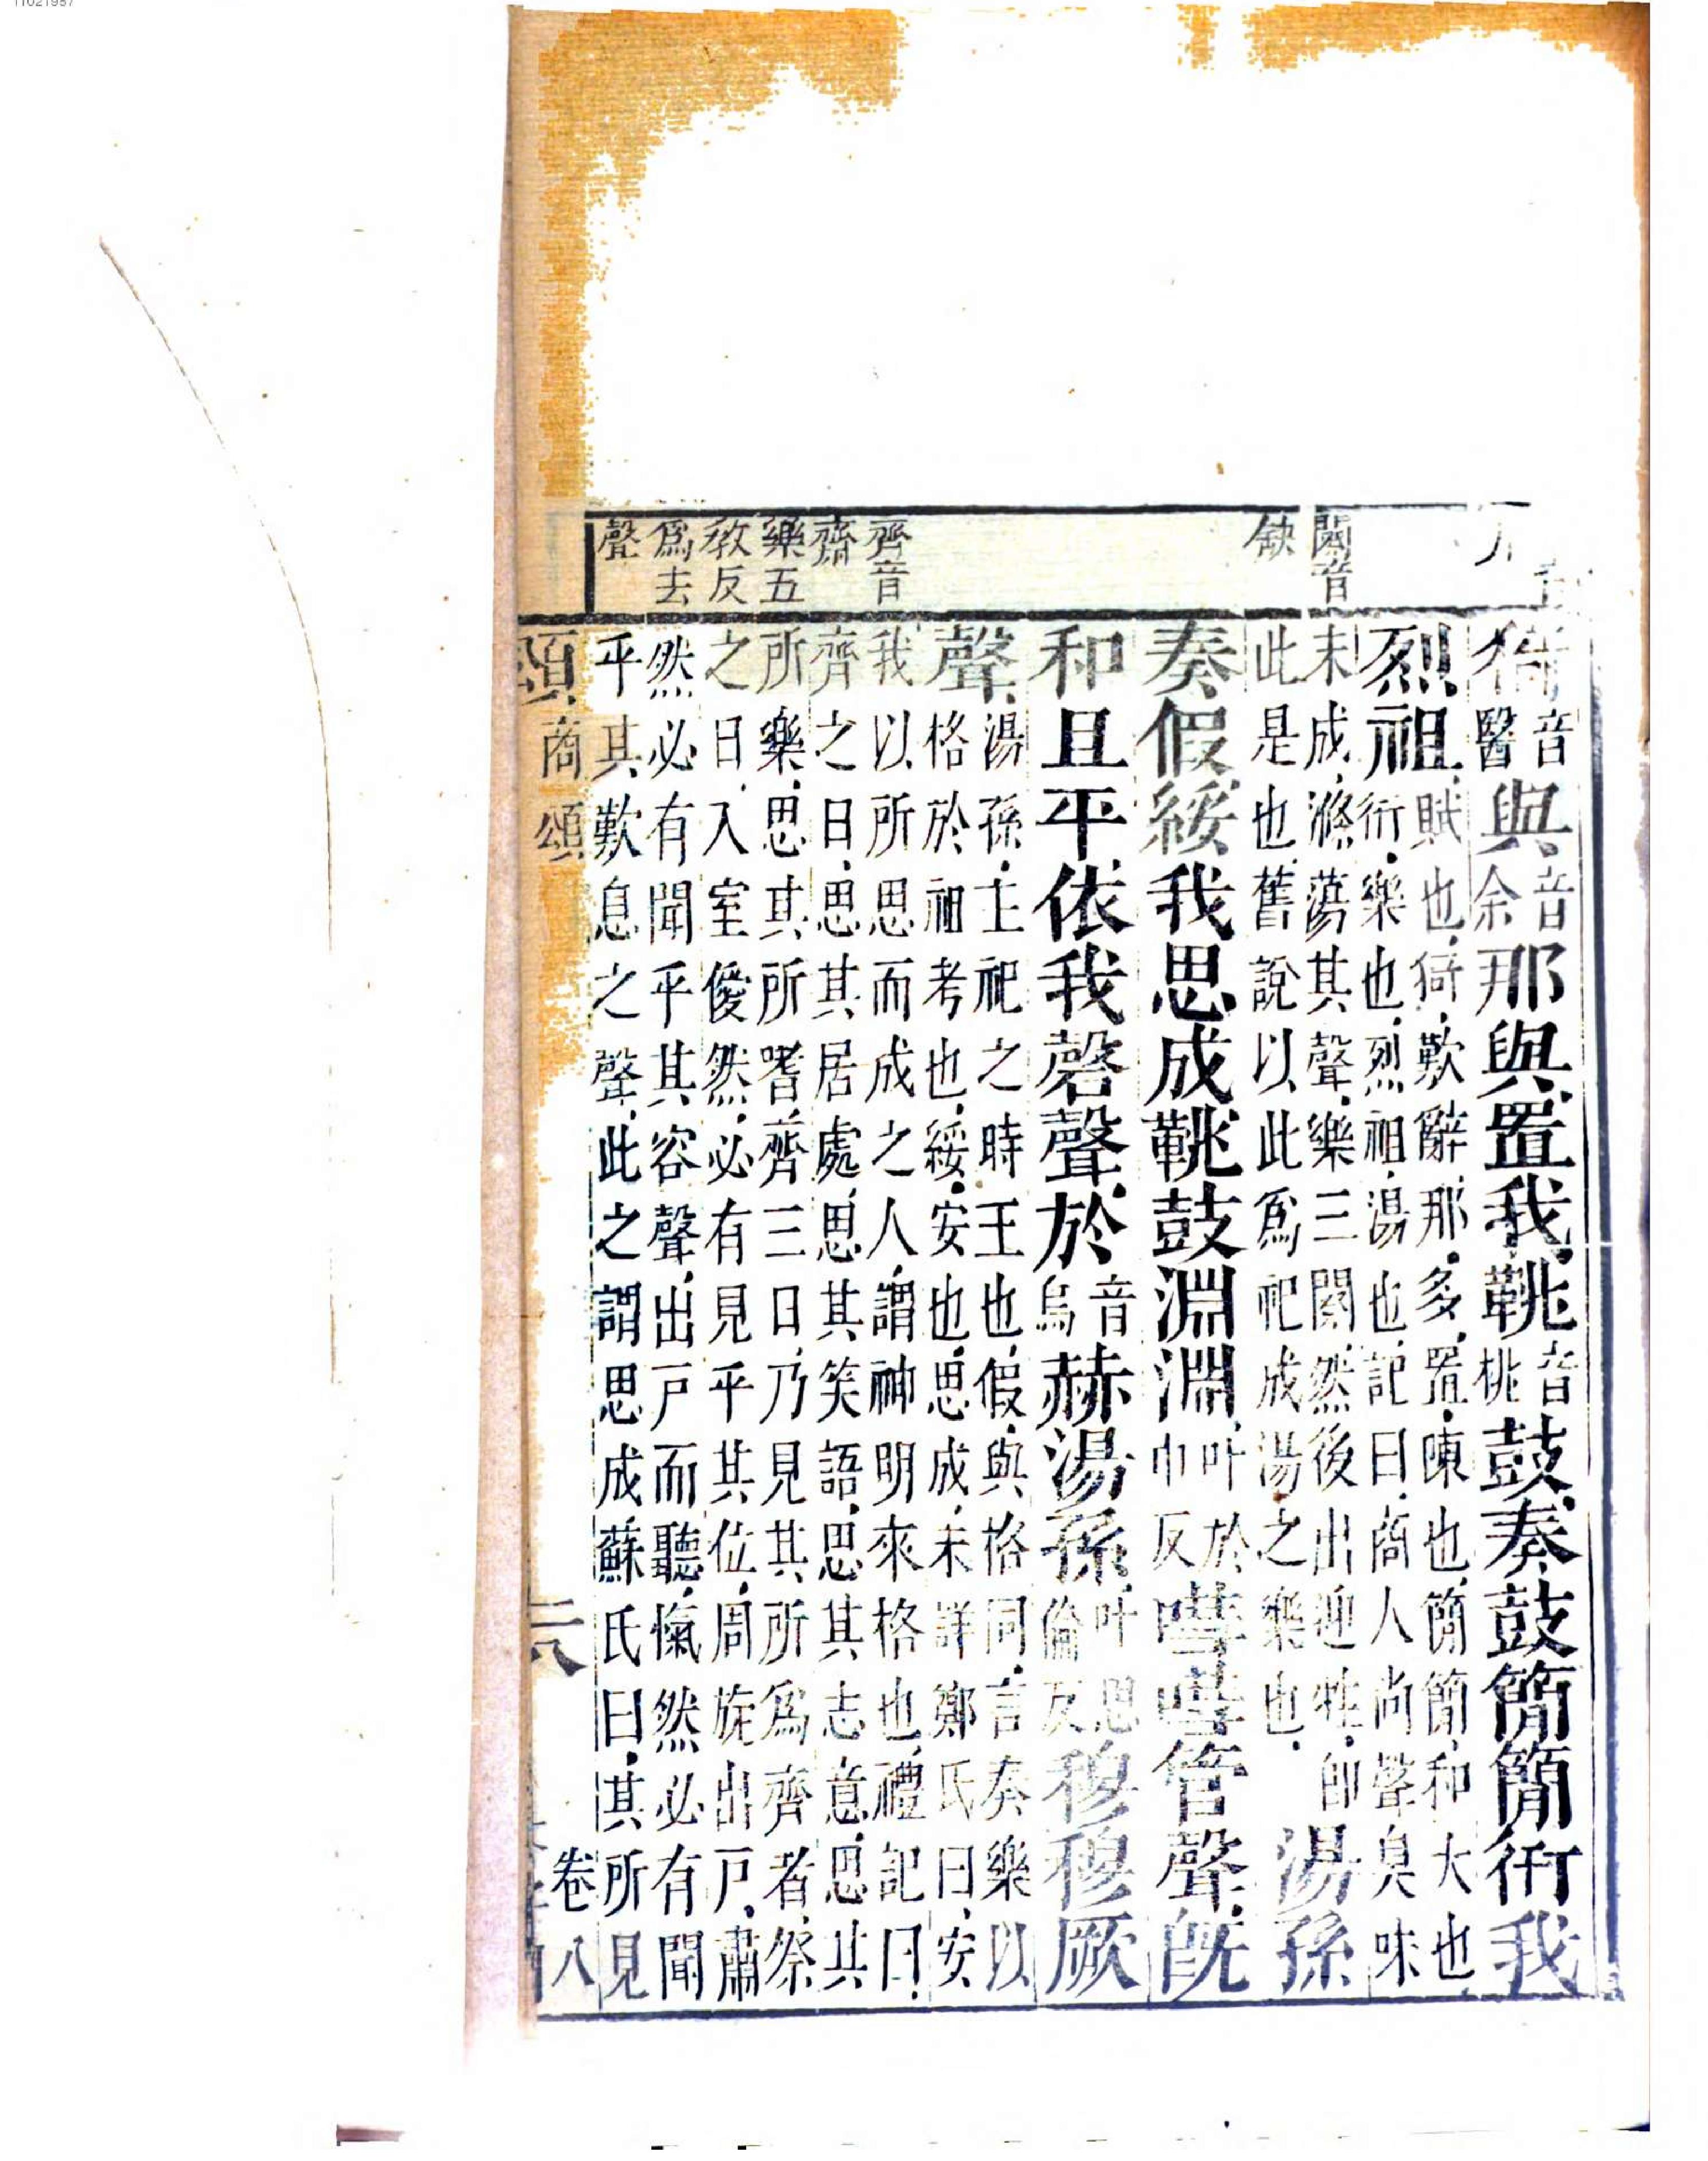 闋音
缺
齊音
齋
樂五
教反
爲去
聲
猗音醫與音余那與置我鞉音桃鼓奏鼓簡簡衎我
烈祖賦也猗歎辭那多置陳也簡簡和大也
衎樂也烈祖湯也記曰商人尚聲臭味
未成滌蕩其聲樂三闋然後出迎牲卽
此是也舊說以此爲祀成湯之樂也 湯孫
奏假綏我思成鞉鼓淵淵叶於巾反嘒嘒管聲旣
和且平依我磬聲於音烏赫湯孫叶思倫反穆穆厥
聲湯孫主祀之時王也假與格同言奏樂以
格於祖考也綏安也思成未詳鄭氏曰安
我以所思而成之人謂神明來格也禮記曰
齊之日思其居處思其笑語思其志意思其
所樂思其所嗜齊三日乃見其所爲齊者祭
之日入室僾然必有見乎其位周旋出戸肅
然必有聞乎其容聲出戸而聽愾然必有聞
乎其歎息之聲此之謂思成蘇氏曰其所見
頌 商頌 二六 卷八